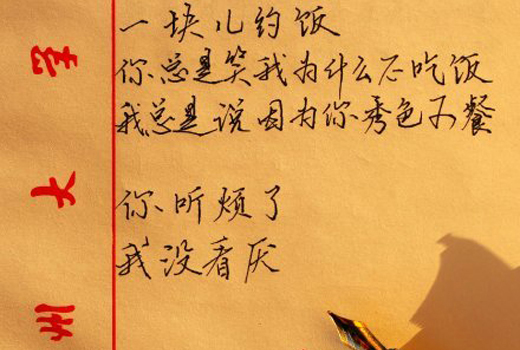 一块儿约饭
你总是笑我为什么不吃饭
我总是说因为你秀色可餐
你听烦了
我没看厌
州大学